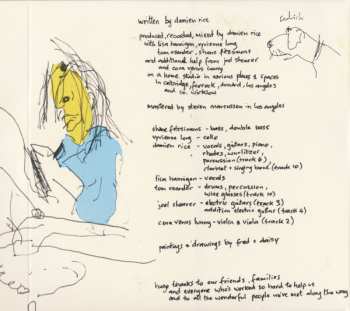 written by damien rice
produced, recorded, mixed by damien rice
with lisa hannigan, vyvienne long,
tom osander, shane fitzsimons
and additional help from joel shearer
and cora venus lunny
in a home studio in various places & spaces
in celbridge, and los angeles
and co. wicklow
mastered by stephen marcussen in los angeles
shane fitzsimons - bass, double bass
vyvienne long - cello
damien rice - vocals, guitars, piano,
rhodes, wurlitzer,
percussion (track 6)
clarinet + singing bowl (track 10)
lisa hannigan - vocals
tom osander - drums, percussion,
wine glasses (track 10)
joel shearer - electric guitars (track 3)
addition electric guitar (track 4)
cora venus lunny - violin & viola (track 2)
paintings & drawings by fred + daisy
huge thanks to our friends, families
and everyone who's worked so hard to help us
and to all the wonderful people we've met along the way